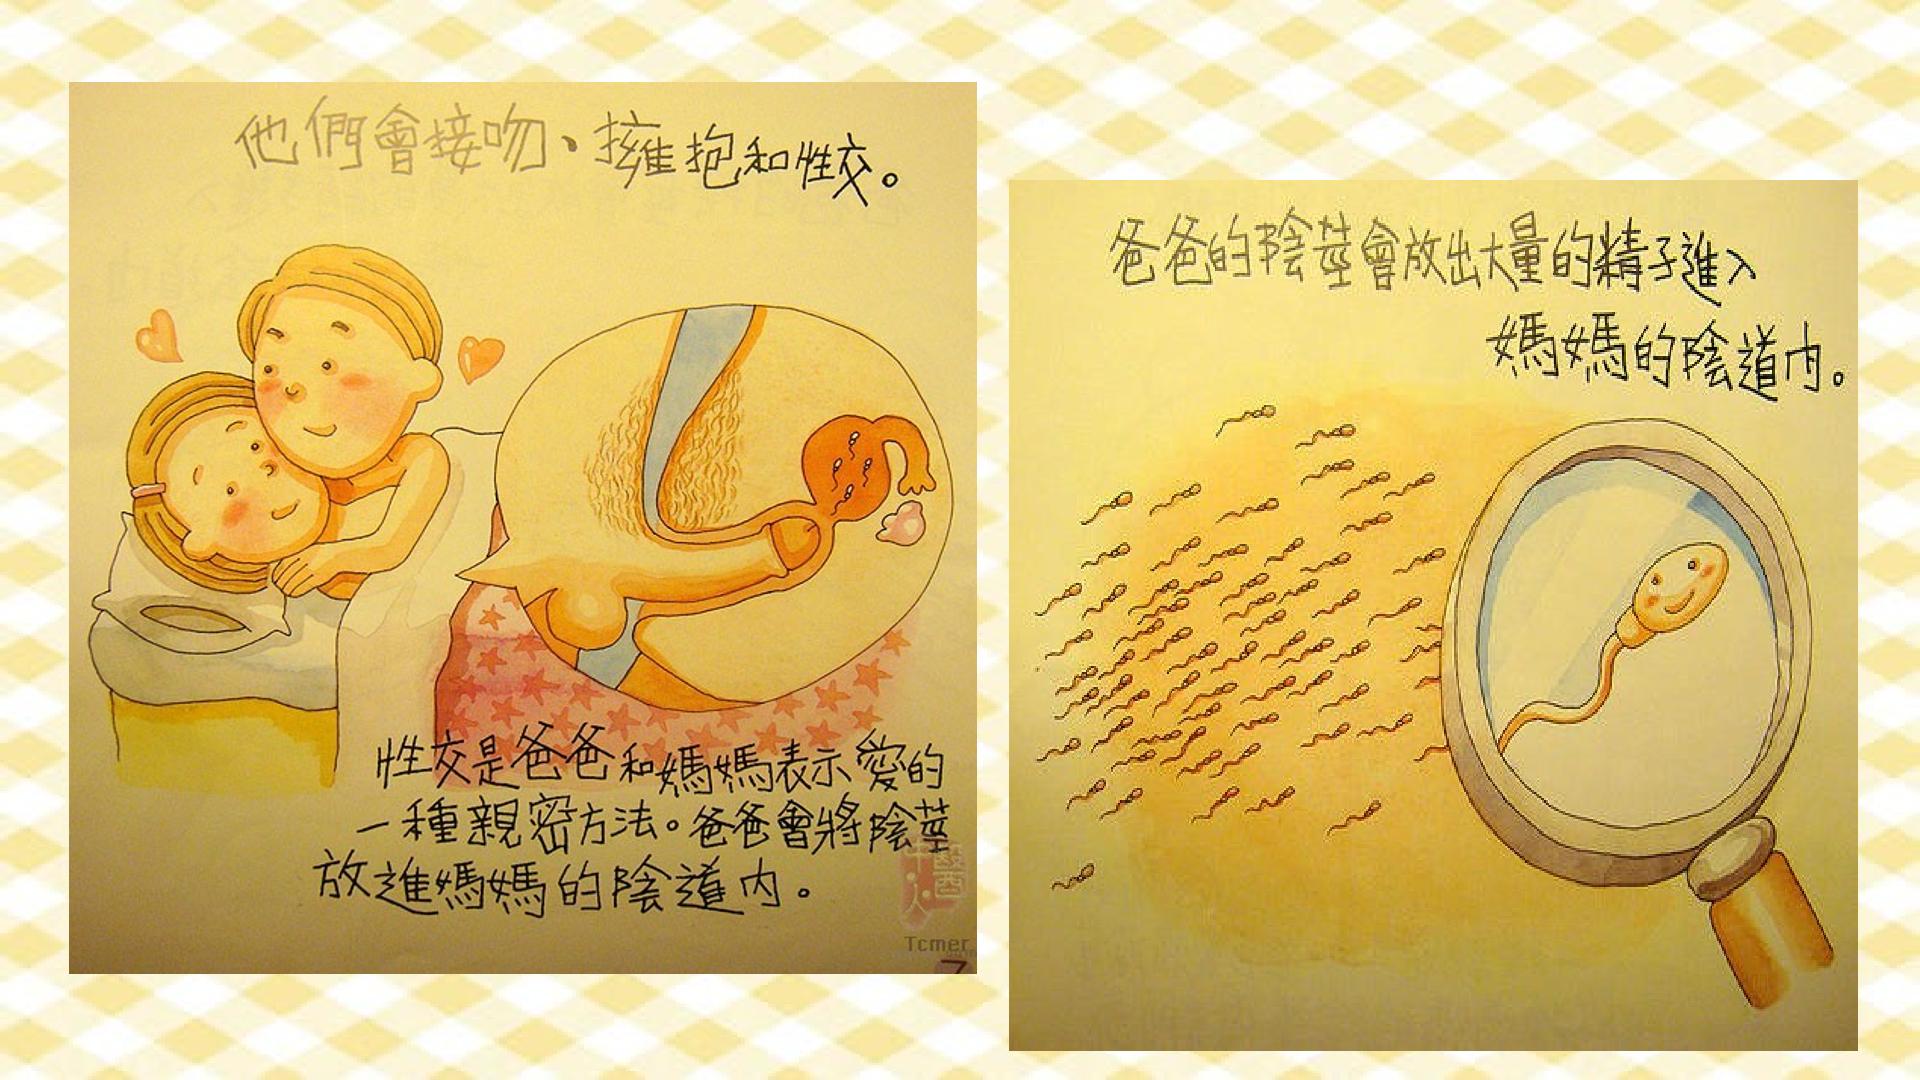 他們會接吻、擁抱和性交。
性交是爸爸和媽媽表示愛的
一種親密方法。爸爸會將陰莖
放進媽媽的陰道內。
中醫人
Tcmer
7
爸爸的陰莖會放出大量的精子進入
媽媽的陰道內。